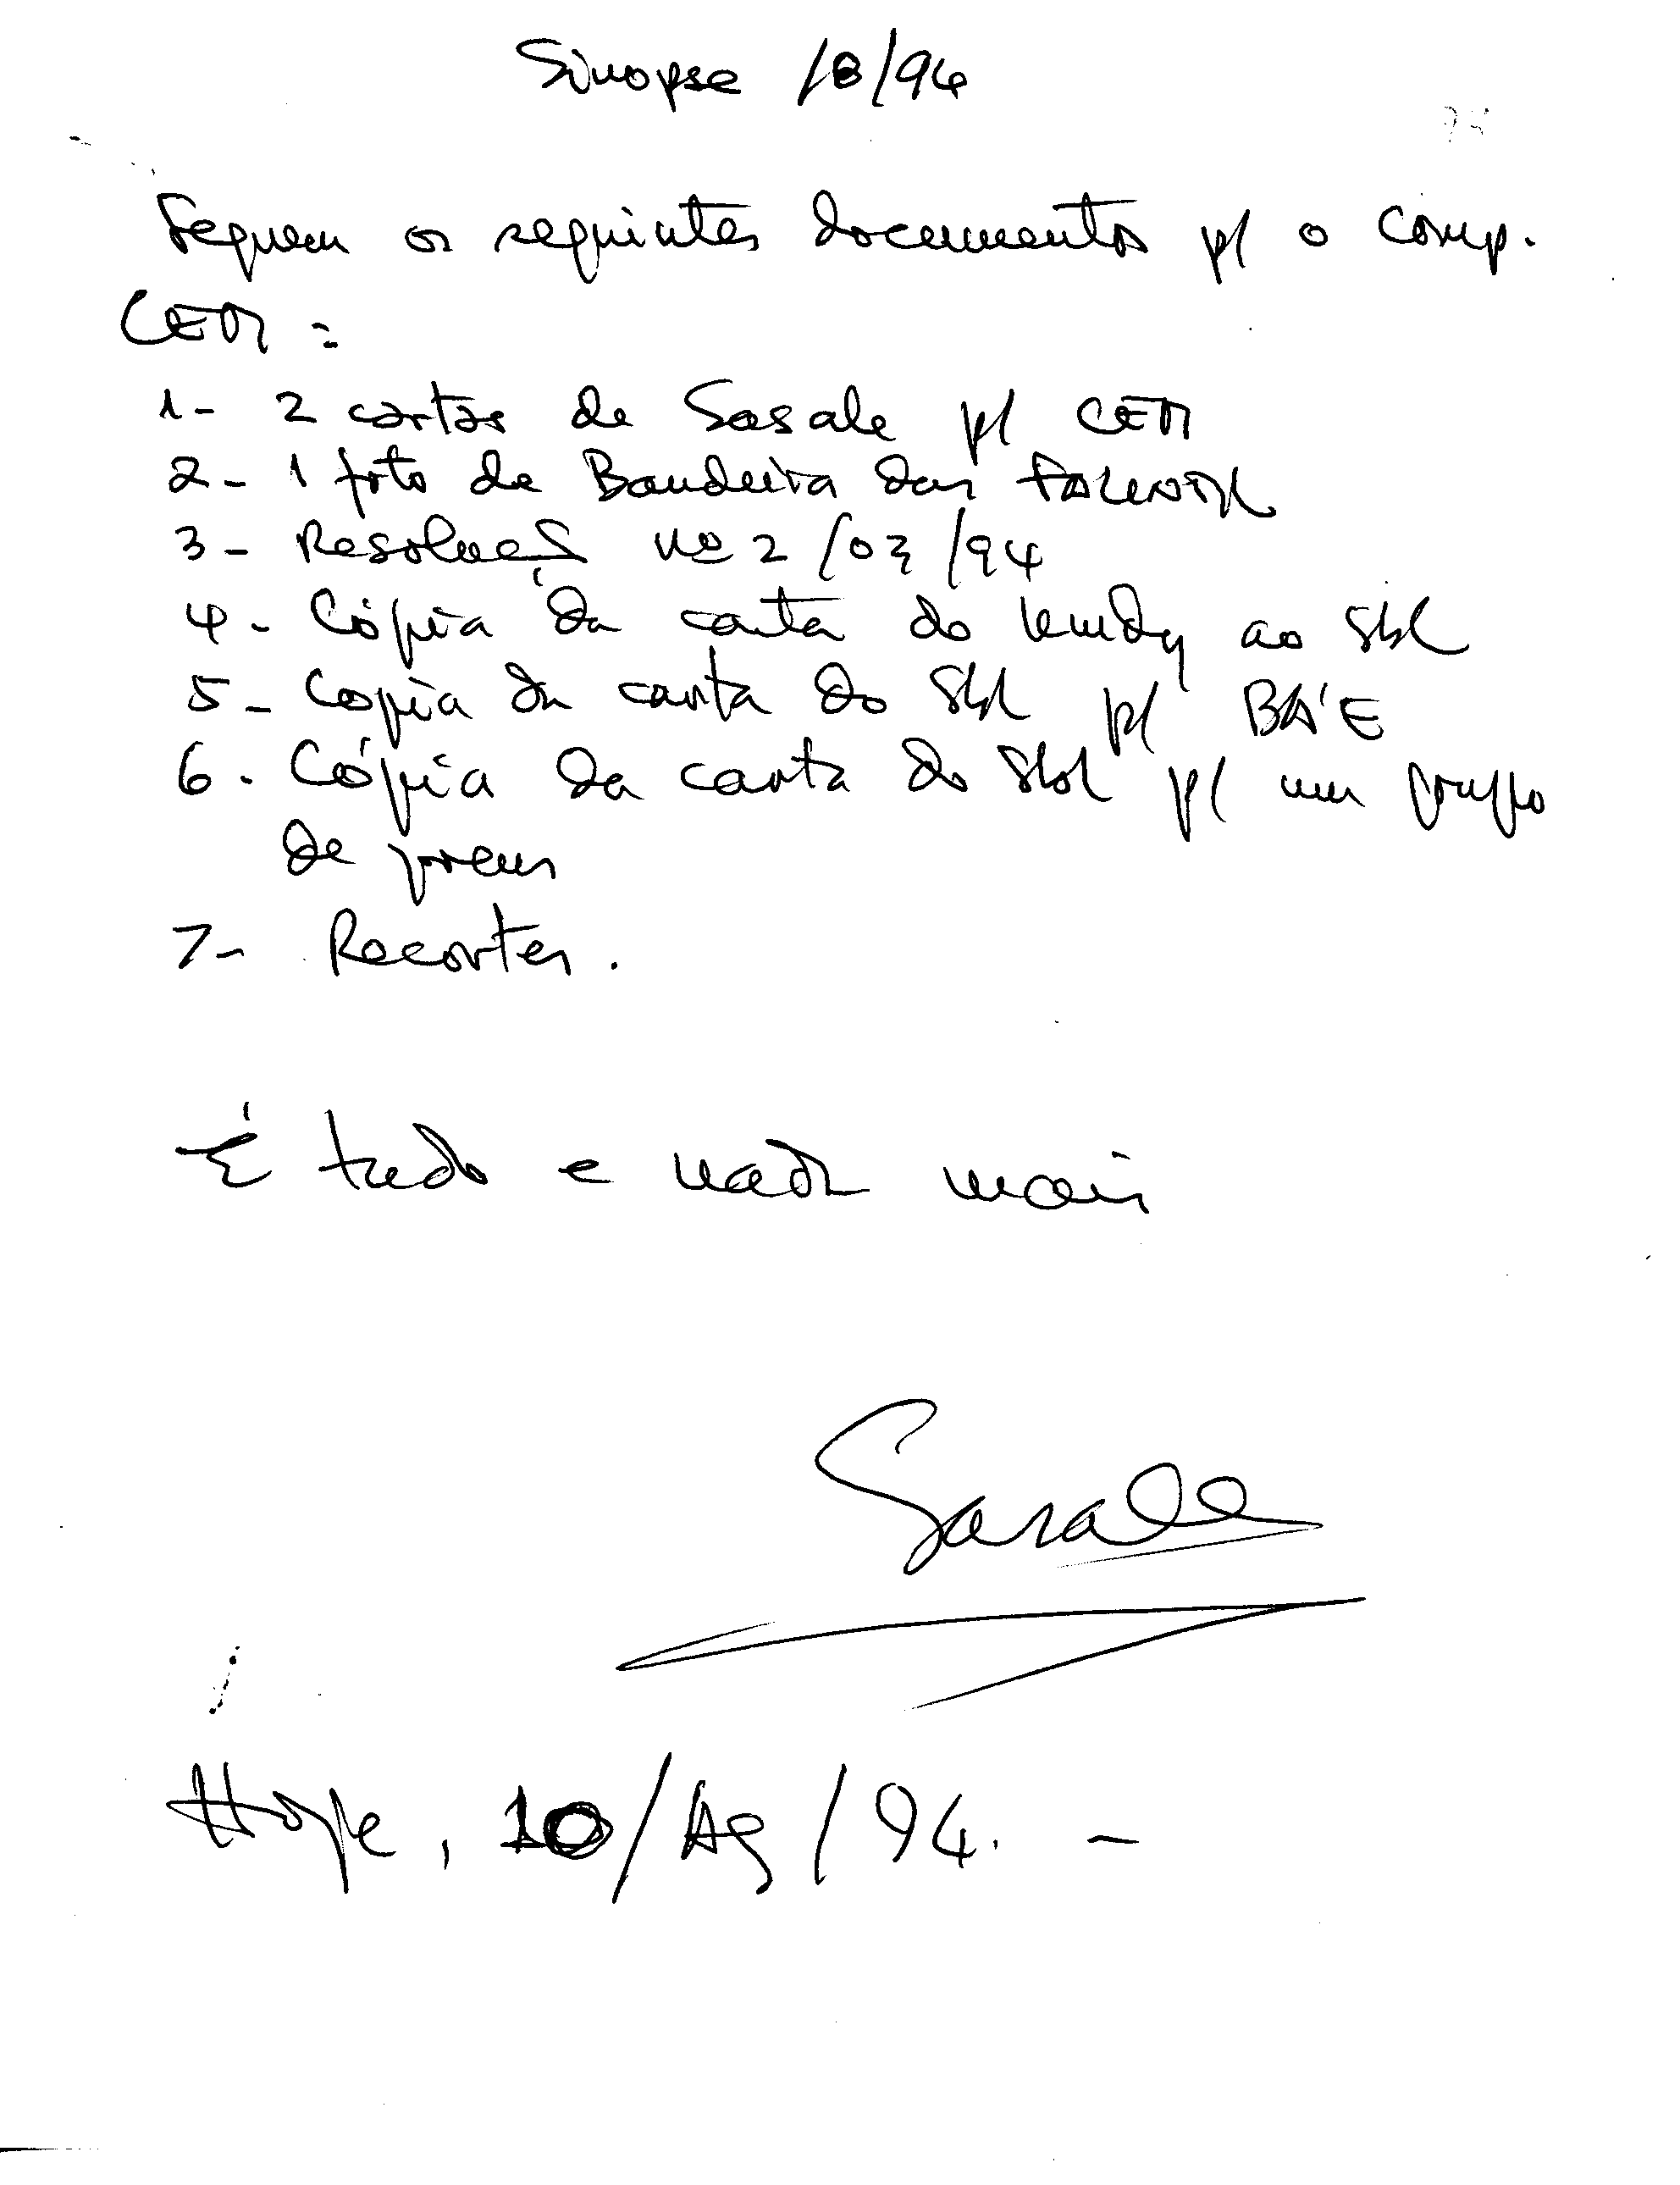 Sinopse /8/94
Seguem os seguintes documentos p/ o Comp.
CEM:
1- 2 cartas de Sasale p/ CEM
2- 1 foto de Bandeira das FALINTIL
3- Resolução nº 2/03/94
4- Cópia da carta do ao SBL
5- Copia da carta do SBL p/ BA'E
6. Cópia da carta do SBL p/ um grupo
de jovens
7- Recortes.
É tudo e nada mais
Sasale
Hoje, 10/Ag/94. -